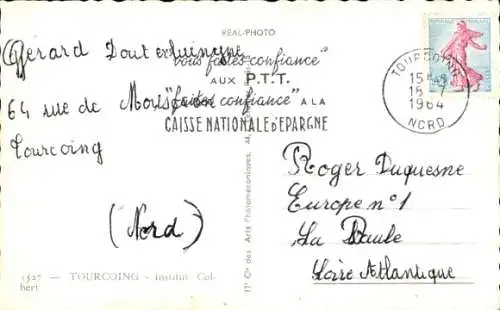 REAL-PHOTO
Gérard
"vous faites confiance"
AUX P.T.T.
"faites confiance" A LA
CAISSE NATIONALE d'EPARGNE
64 rue de
Tourcoing
(Nord)
TOURCOING
15
18 - 7
1964
NORD
Roger Duquesne
Europe n°1
La Baule
Loire Atlantique
1527 — TOURCOING - Institut Col-
bert
des Arts Photomécaniques